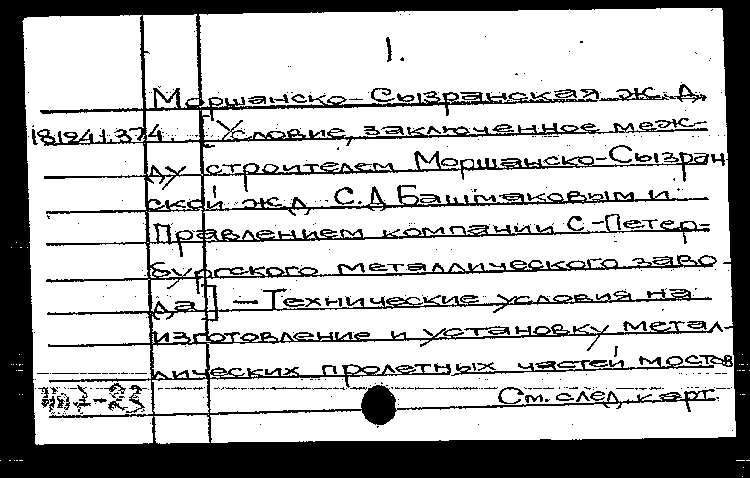 1.
Моршанско-Сызранская ж.д.
18124.1.374. [Условие, заключенное меж-
ду строителем Моршанско-Сызран
ской ж.д. С.Д Башмаковым и
Правлением компании С-Петер-
бургского металлического заво-
да] - Технические условия на
изготовление и установку метал-
лических пролетных частей мостов
См. след. карт.